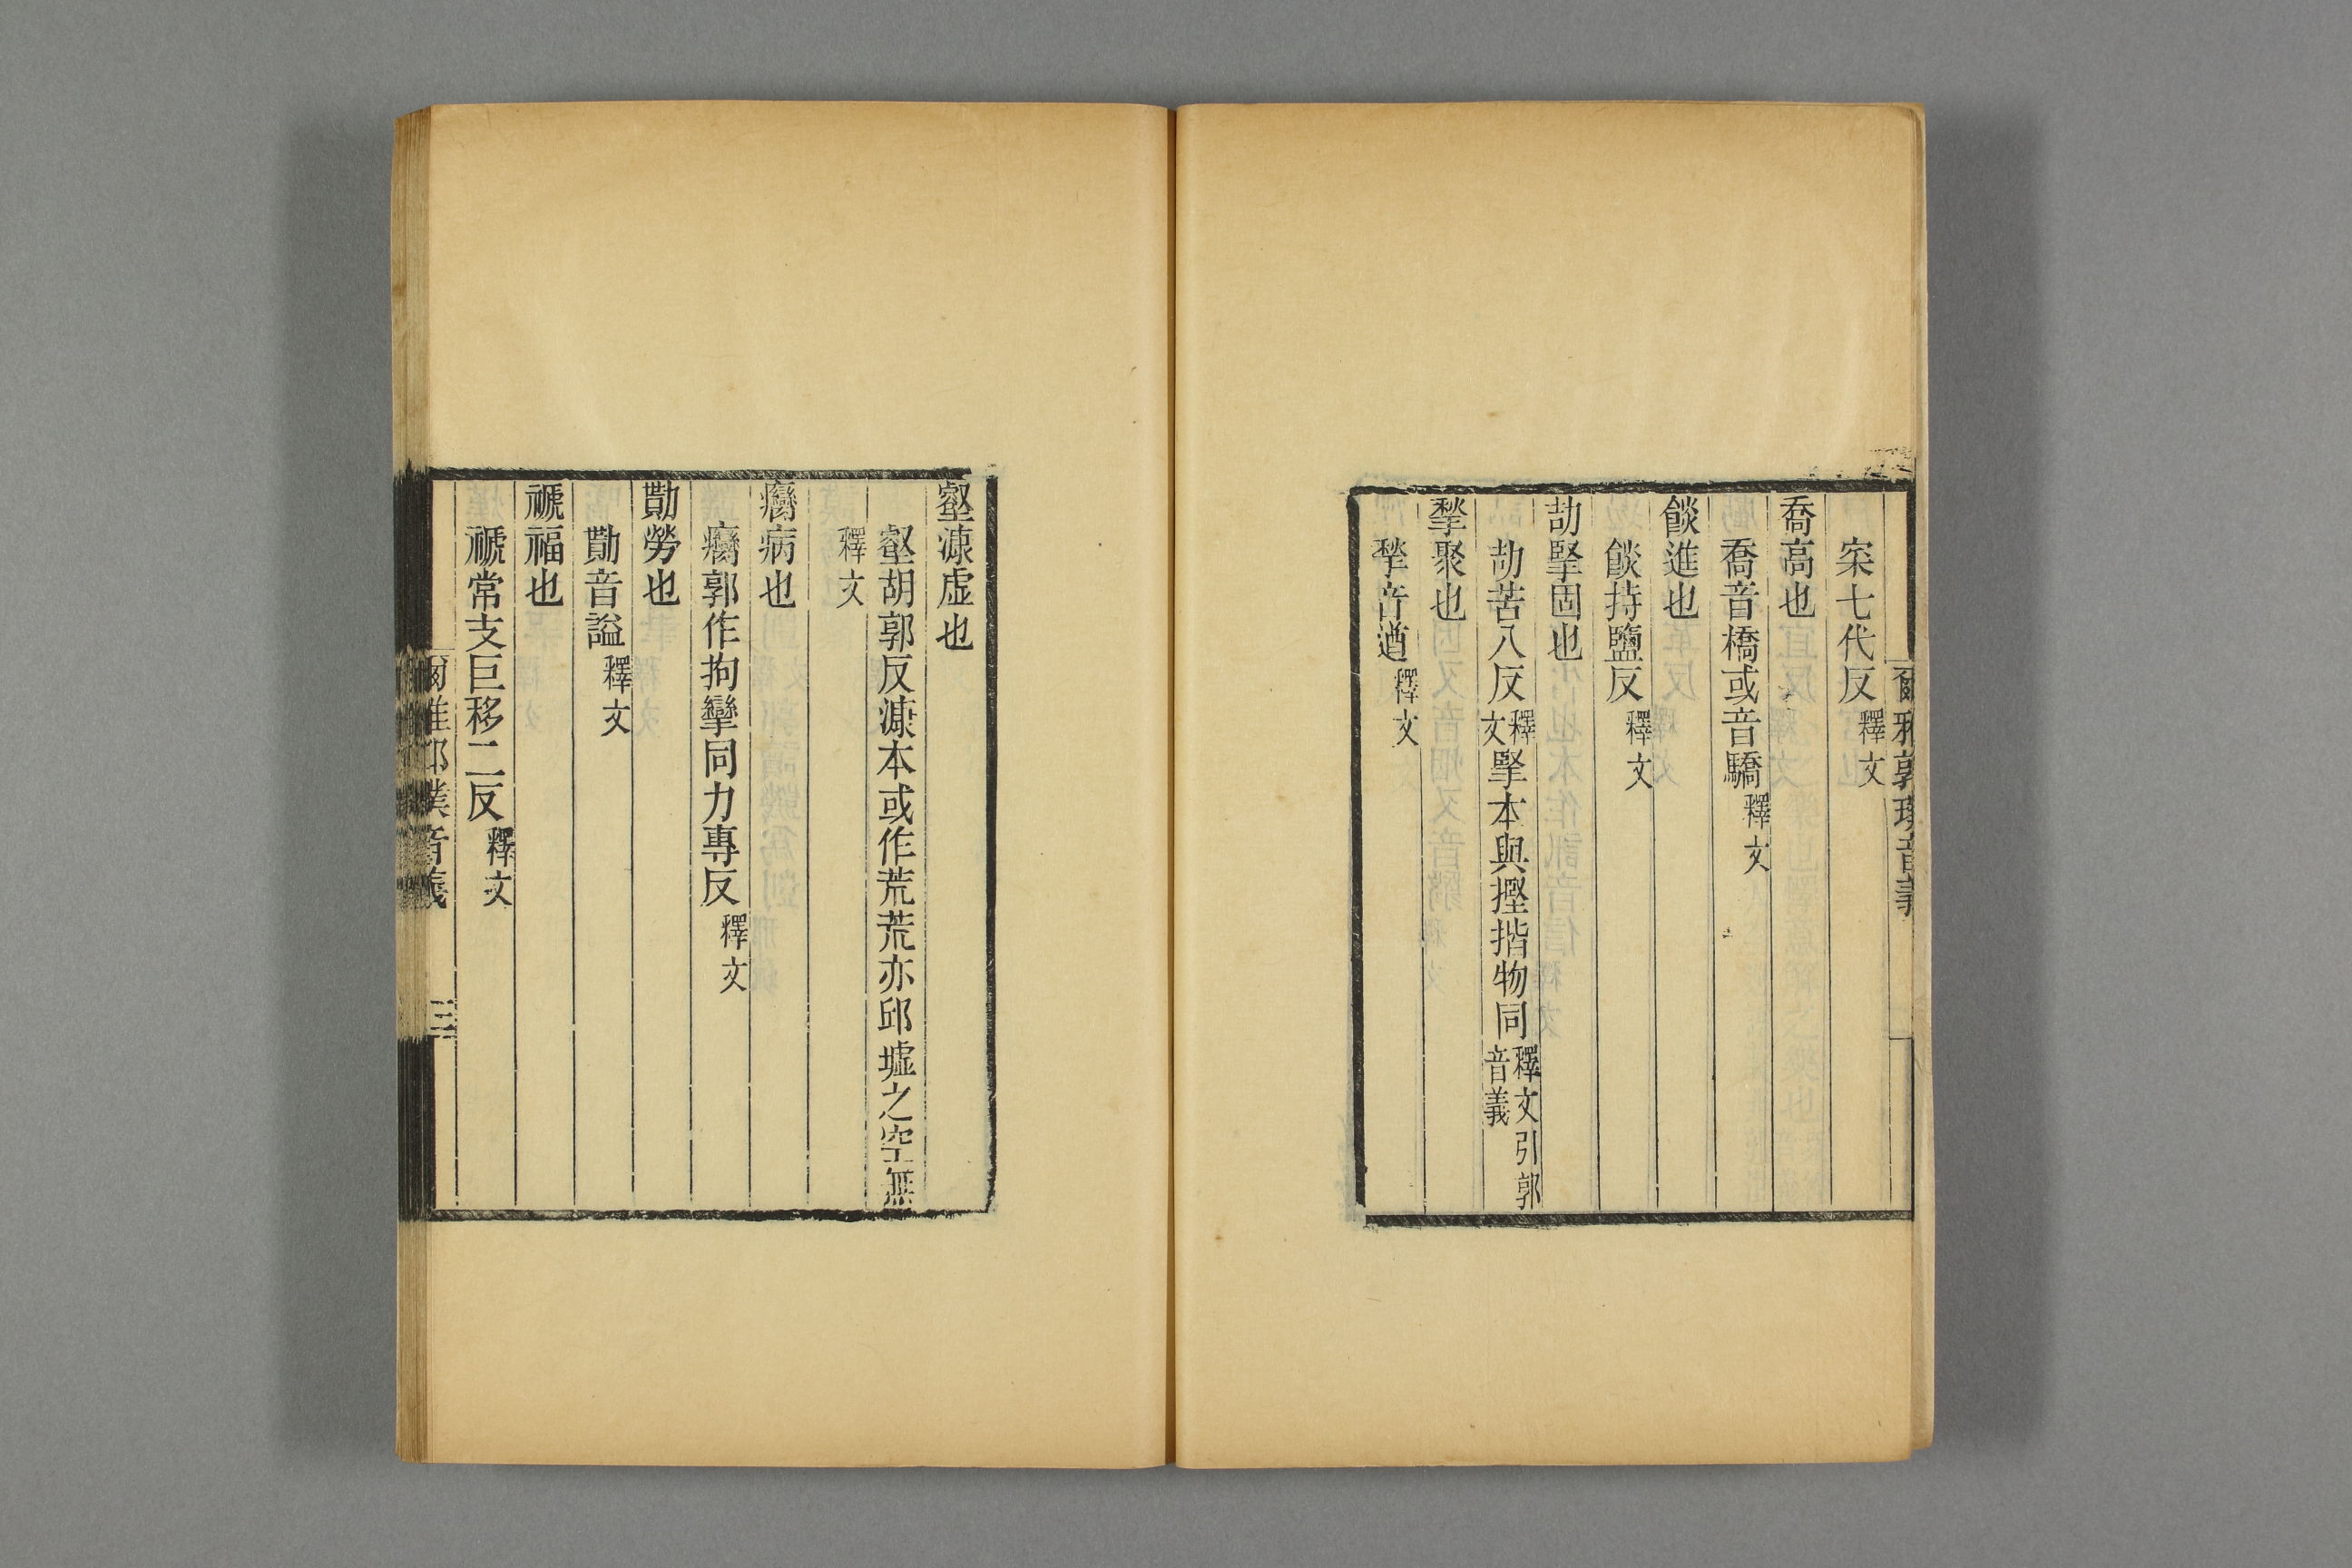 爾雅郭璞音義
寀七代反釋文
喬高也
喬音橋或音驕釋文
餤進也
餤持鹽反釋文
劼掔固也
劼苦八反釋文掔本與摼揩物同釋文引郭音義
揫聚也
揫音遒釋文
壑漮虛也
壑胡郭反漮本或作荒荒亦邱墟之空無
釋文
癵病也
癵郭作拘攣同力專反釋文
勩勞也
勩音謚釋文
禠福也
禠常支巨移二反釋文
爾雅郭璞音義
三